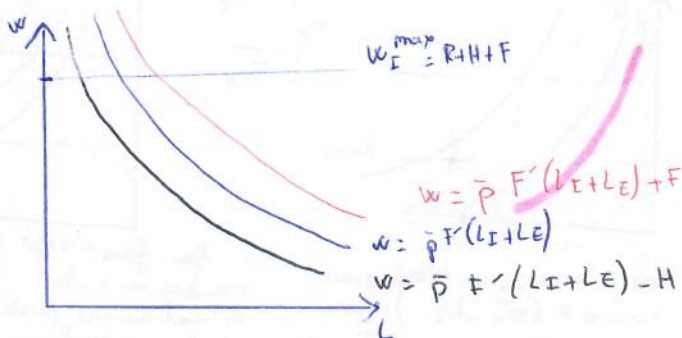 w
w_I^max = R+H+F
w = p̄ F'(L_I+L_E) + F
w = p̄ F'(L_I+L_E)
w = p̄ F'(L_I+L_E) - H
L